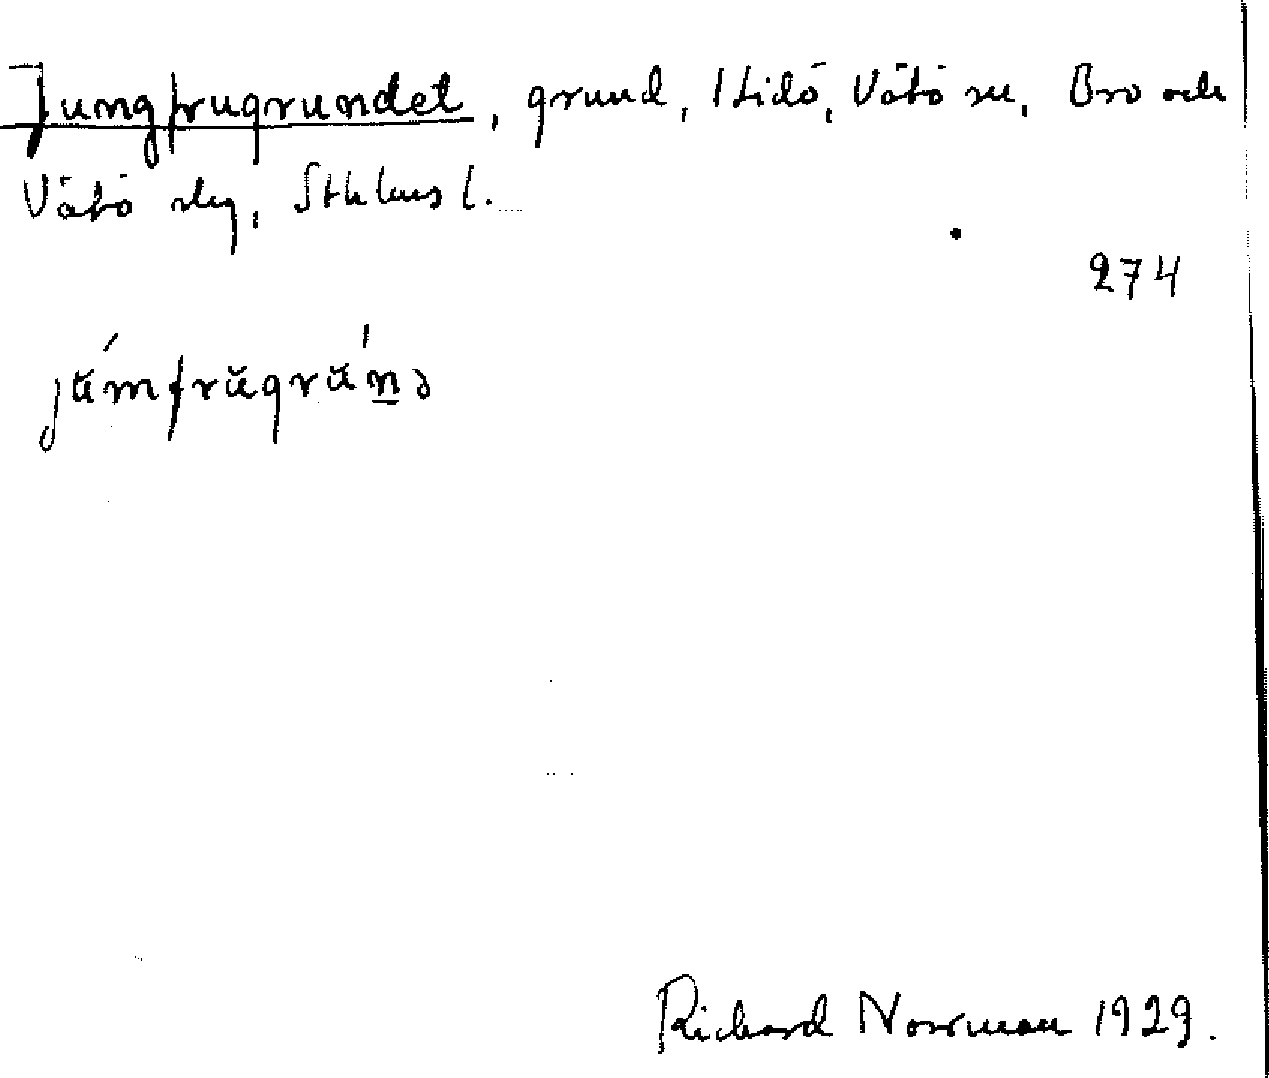 Jungfrugrundet, grund, Lidö, Vätö sn, Bro och
Vätö slg, Sthlms l.
274
jŭ́mfrŭgrŭ́n̲ə
Richard Norrman 1929.